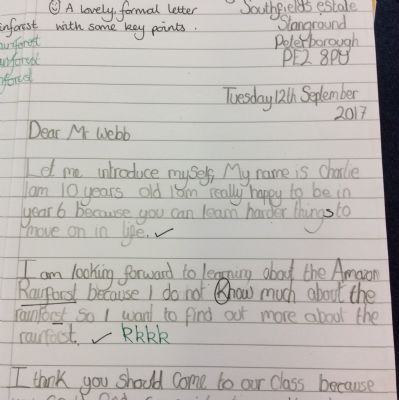 ☺ A lovely, formal letter
with some key points.
Southfields estate
Stanground
Peterborough
PE2 8PU
Tuesday 12th September
2017
Dear Mr Webb
Let me introduce myself, My name is Charlie
I am 10 years old I am really happy to be in
year 6 because you can learn harder things to
move on in life. ✓
I am looking forward to learning about the Amazon
Rainforst because I do not Know much about the
rainforst so I want to find out more about the
rainforst. ✓ Kkkk
I think you should come to our class because